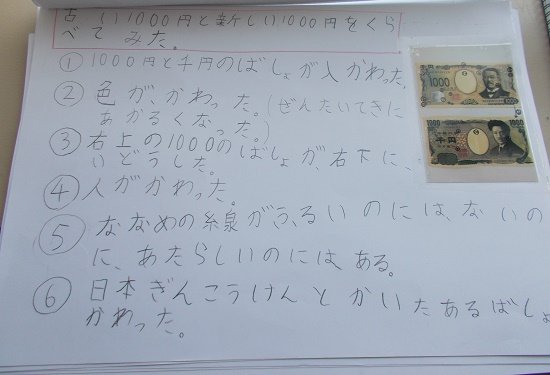 古い1000円と新しい1000円をくら
べてみた。
① 1000円と千円のばしょが入かわった。
② 色が、かわった。(ぜんたいてきに
あかるくなった。)
③ 右上の1000のばしょが、右下に、
いどうした。
④ 人がかわった。
⑤ ななめの線がふるいのには、ないの
に、あたらしいのには、ある。
⑥ 日本ぎんこうけんとかいたあるばしょ
かわった。
1000
1000
千円